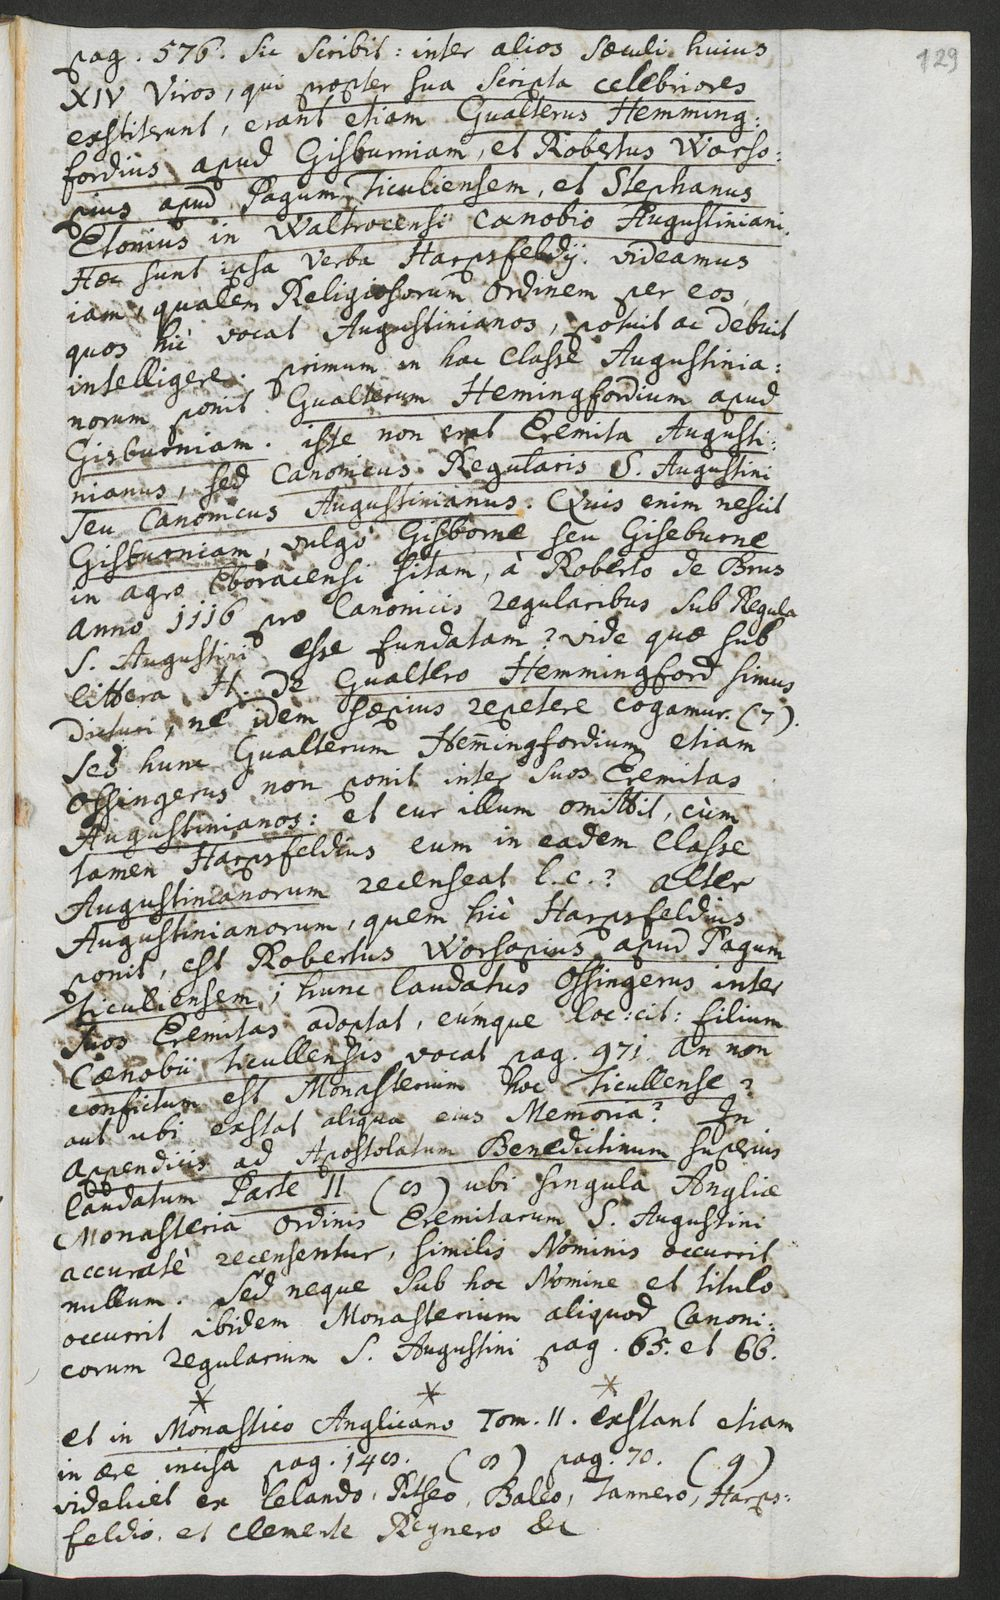 129
pag. 576. sic scribit: inter alios sæculi huius
XIV Viros, qui propter sua scripta celebriores
exstiterunt, erant etiam Gualterus Hemming:
fordius apud Gisburniam, et Robertus Worso:
pius apud Pagum Ticuliensem, et Stephanus
Etonius in Waltrocensi Cænobio Augustiniani.
Hæc sunt ipsa verba Harpsfeldij. videamus
iam, qualem Religiosorum Ordinem per eos,
quos hic vocat Augustinianos, potuit ac debuit
intelligere. primum in hac Classe Augustinia:
norum ponit Gualterum Hemingfordium apud
Gisburniam. iste non erat Eremita Augusti:
nianus, sed Canonicus Regularis S. Augustini
seu Canonicus Augustinianus. Quis enim nescit
Gisburniam, vulgò Gisborne seu Giseburne
in agro Eboracensi sitam, à Roberto de Brus
anno 1116 pro Canonicis regularibus sub Regula
S. Augustini esse fundatam? vide quæ sub
littera H. de Gualtero Hemmingford simus
dicturi, ne idem sæpius repetere cogamur. (7).
Sed hunc Gualterum Hem̄ingfordium etiam
Ossingerus non ponit inter suos Eremitas
Augustinianos: et cur illum omittit, cùm
tamen Harpsfeldius eum in eadem Classe
Augustinianorum recenseat l.c.? alter
Augustinianorum, quem hic Harpsfeldius
ponit, est Robertus Worsopius apud Pagum
Ticuliensem; hunc laudatus Ossingerus inter
suos Eremitas adoptat, eúmque loc:cit: filium
Cænobii Ticullensis vocat pag. 971. an non
confictum est Monasterium hoc Ticullense?
aut ubi exstat aliqua eius Memoria? In
appendicis ad Apostolatum Benedictinum superius
laudatum Parte II (8) ubi singula Angliæ
Monasteria Ordinis Eremitarum S. Augustini
accuratè recensentur, similis Nominis occurrit
nullum. Sed neque sub hoc Nomine et titulo
occurrit ibidem Monasterium aliquod Canoni:
corum regularium S. Augustini pag. 65. et 66.
* * *
et in Monastico Anglicano Tom. II. exstant etiam
in ære incisa pag. 148. (8) pag. 70. (9)
videlicet ex Lelando, Pitseo, Baleo, Tannero, Harps:
feldio, et Clemente Reynero &c